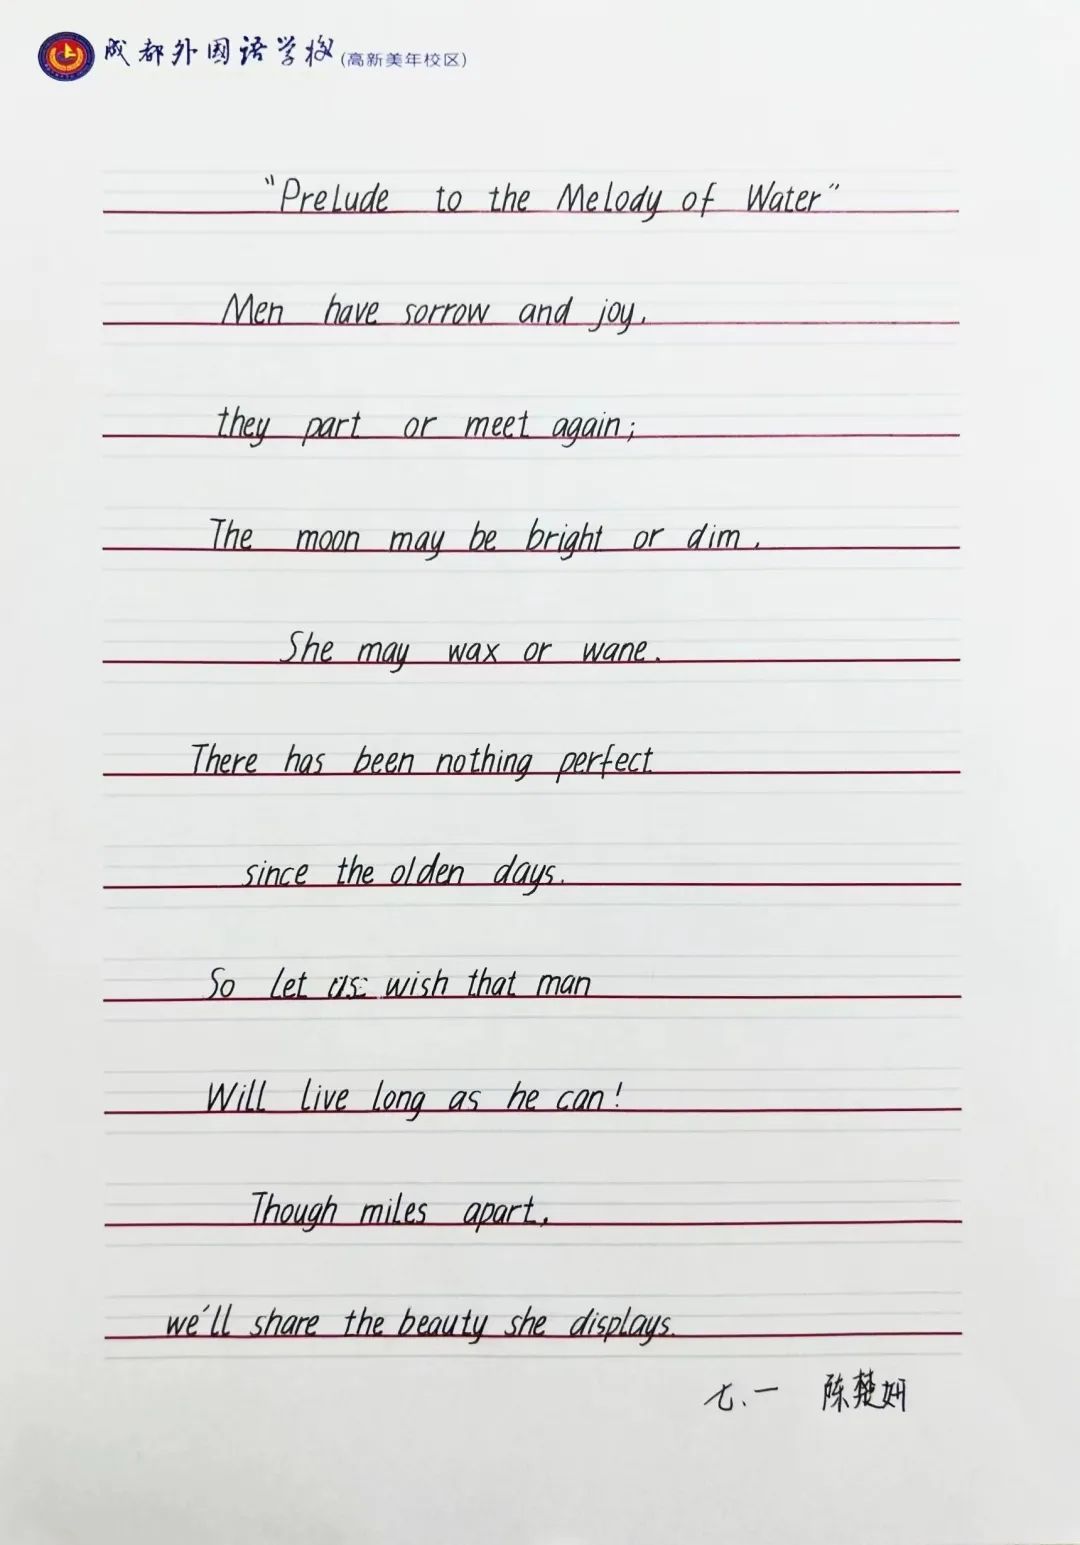 成都外国语学校(高新美年校区)
"Prelude to the Melody of Water"
Men have sorrow and joy,
they part or meet again;
The moon may be bright or dim,
She may wax or wane.
There has been nothing perfect
since the olden days.
So let us wish that man
Will live long as he can!
Though miles apart,
we'll share the beauty she displays.
七、一 陈楚妍